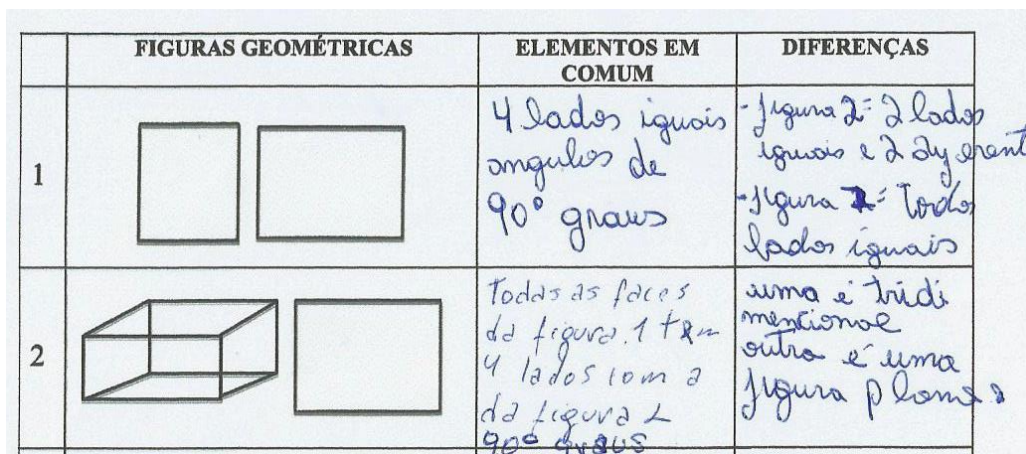 FIGURAS GEOMÉTRICAS
ELEMENTOS EM
COMUM
DIFERENÇAS
1
4 lados iguais
angulos de
90° graus
- figura 2 = 2 lados
iguais e 2
- figura 1 = Todos
lados iguais
2
Todas as faces
da figura 1 tem
4 lados com a
da figura 2
90° graus
uma é tridi
mencional
outra é uma
figura plana